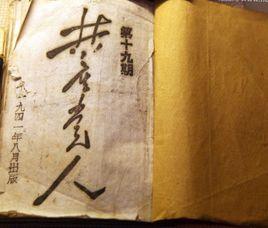 第十九期
共产党人
一九四一年八月出版